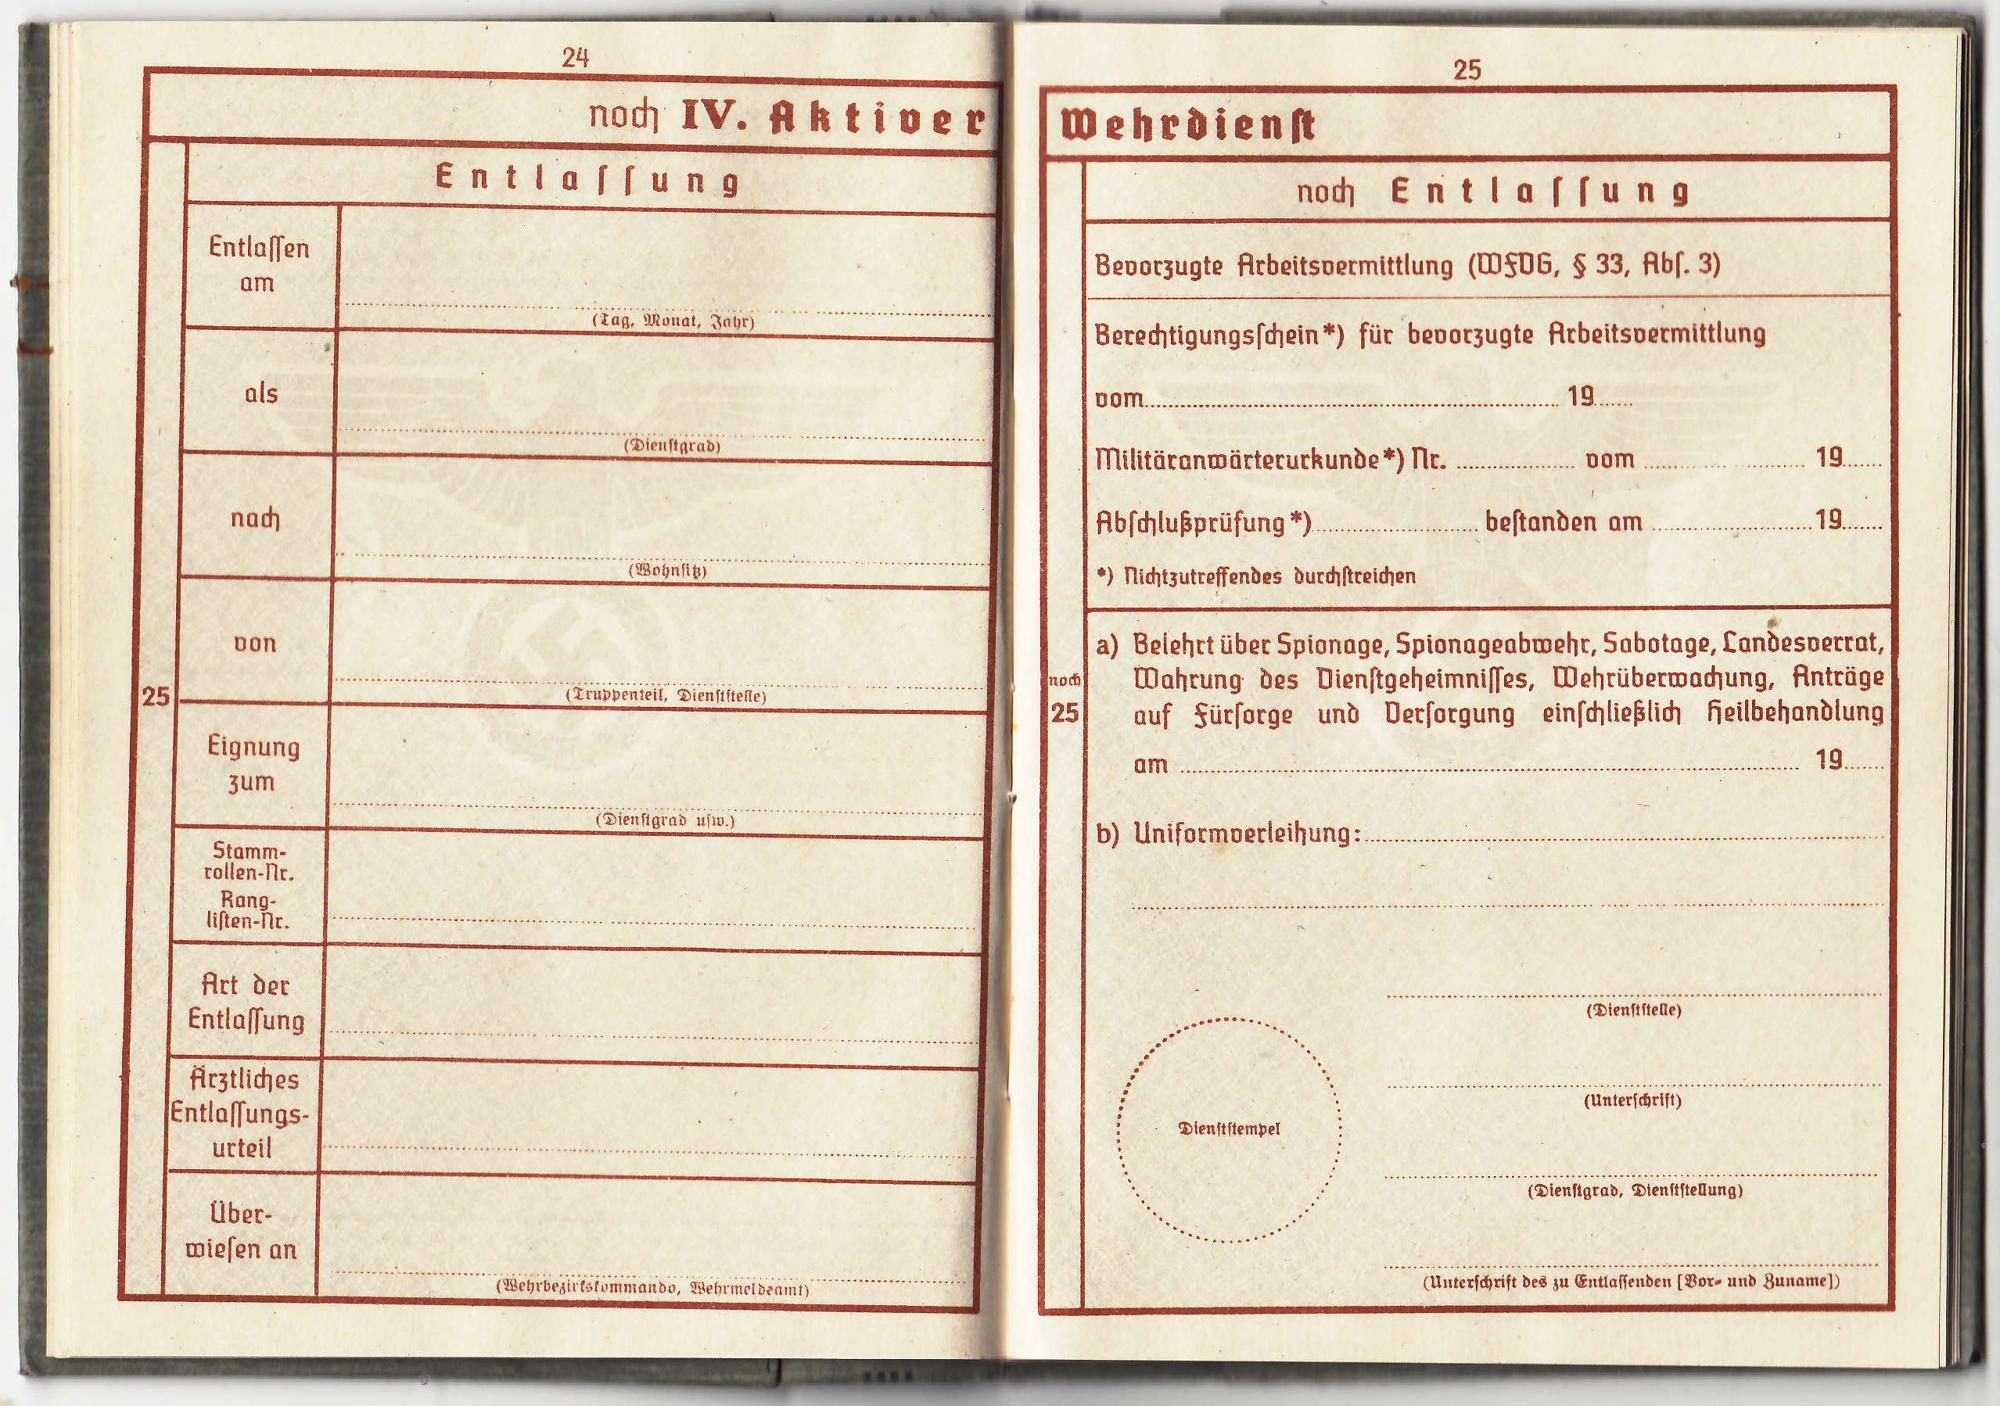 24
noch IV. Aktiver
Entlassung
Entlassen
am
(Tag, Monat, Jahr)
als
(Dienstgrad)
nach
(Wohnsitz)
von
(Truppenteil, Dienststelle)
25
Eignung
zum
(Dienstgrad usw.)
Stamm-
rollen-Nr.
Rang-
listen-Nr.
Art der
Entlassung
Ärztliches
Entlassungs-
urteil
Über-
wiesen an
(Wehrbezirkskommando, Wehrmeldeamt)
25
Wehrdienst
noch Entlassung
Bevorzugte Arbeitsvermittlung (WFVG, § 33, Abs. 3)
Berechtigungsschein*) für bevorzugte Arbeitsvermittlung
vom 19
Militäranwärterurkunde*) Nr. vom 19
Abschlußprüfung*) bestanden am 19
*) Nichtzutreffendes durchstreichen
noch
25
a) Belehrt über Spionage, Spionageabwehr, Sabotage, Landesverrat,
Wahrung des Dienstgeheimnisses, Wehrüberwachung, Anträge
auf Fürsorge und Versorgung einschließlich Heilbehandlung
am 19
b) Uniformverleihung:
(Dienststelle)
(Unterschrift)
Dienststempel
(Dienstgrad, Dienststellung)
(Unterschrift des zu Entlassenden [Vor- und Zuname])